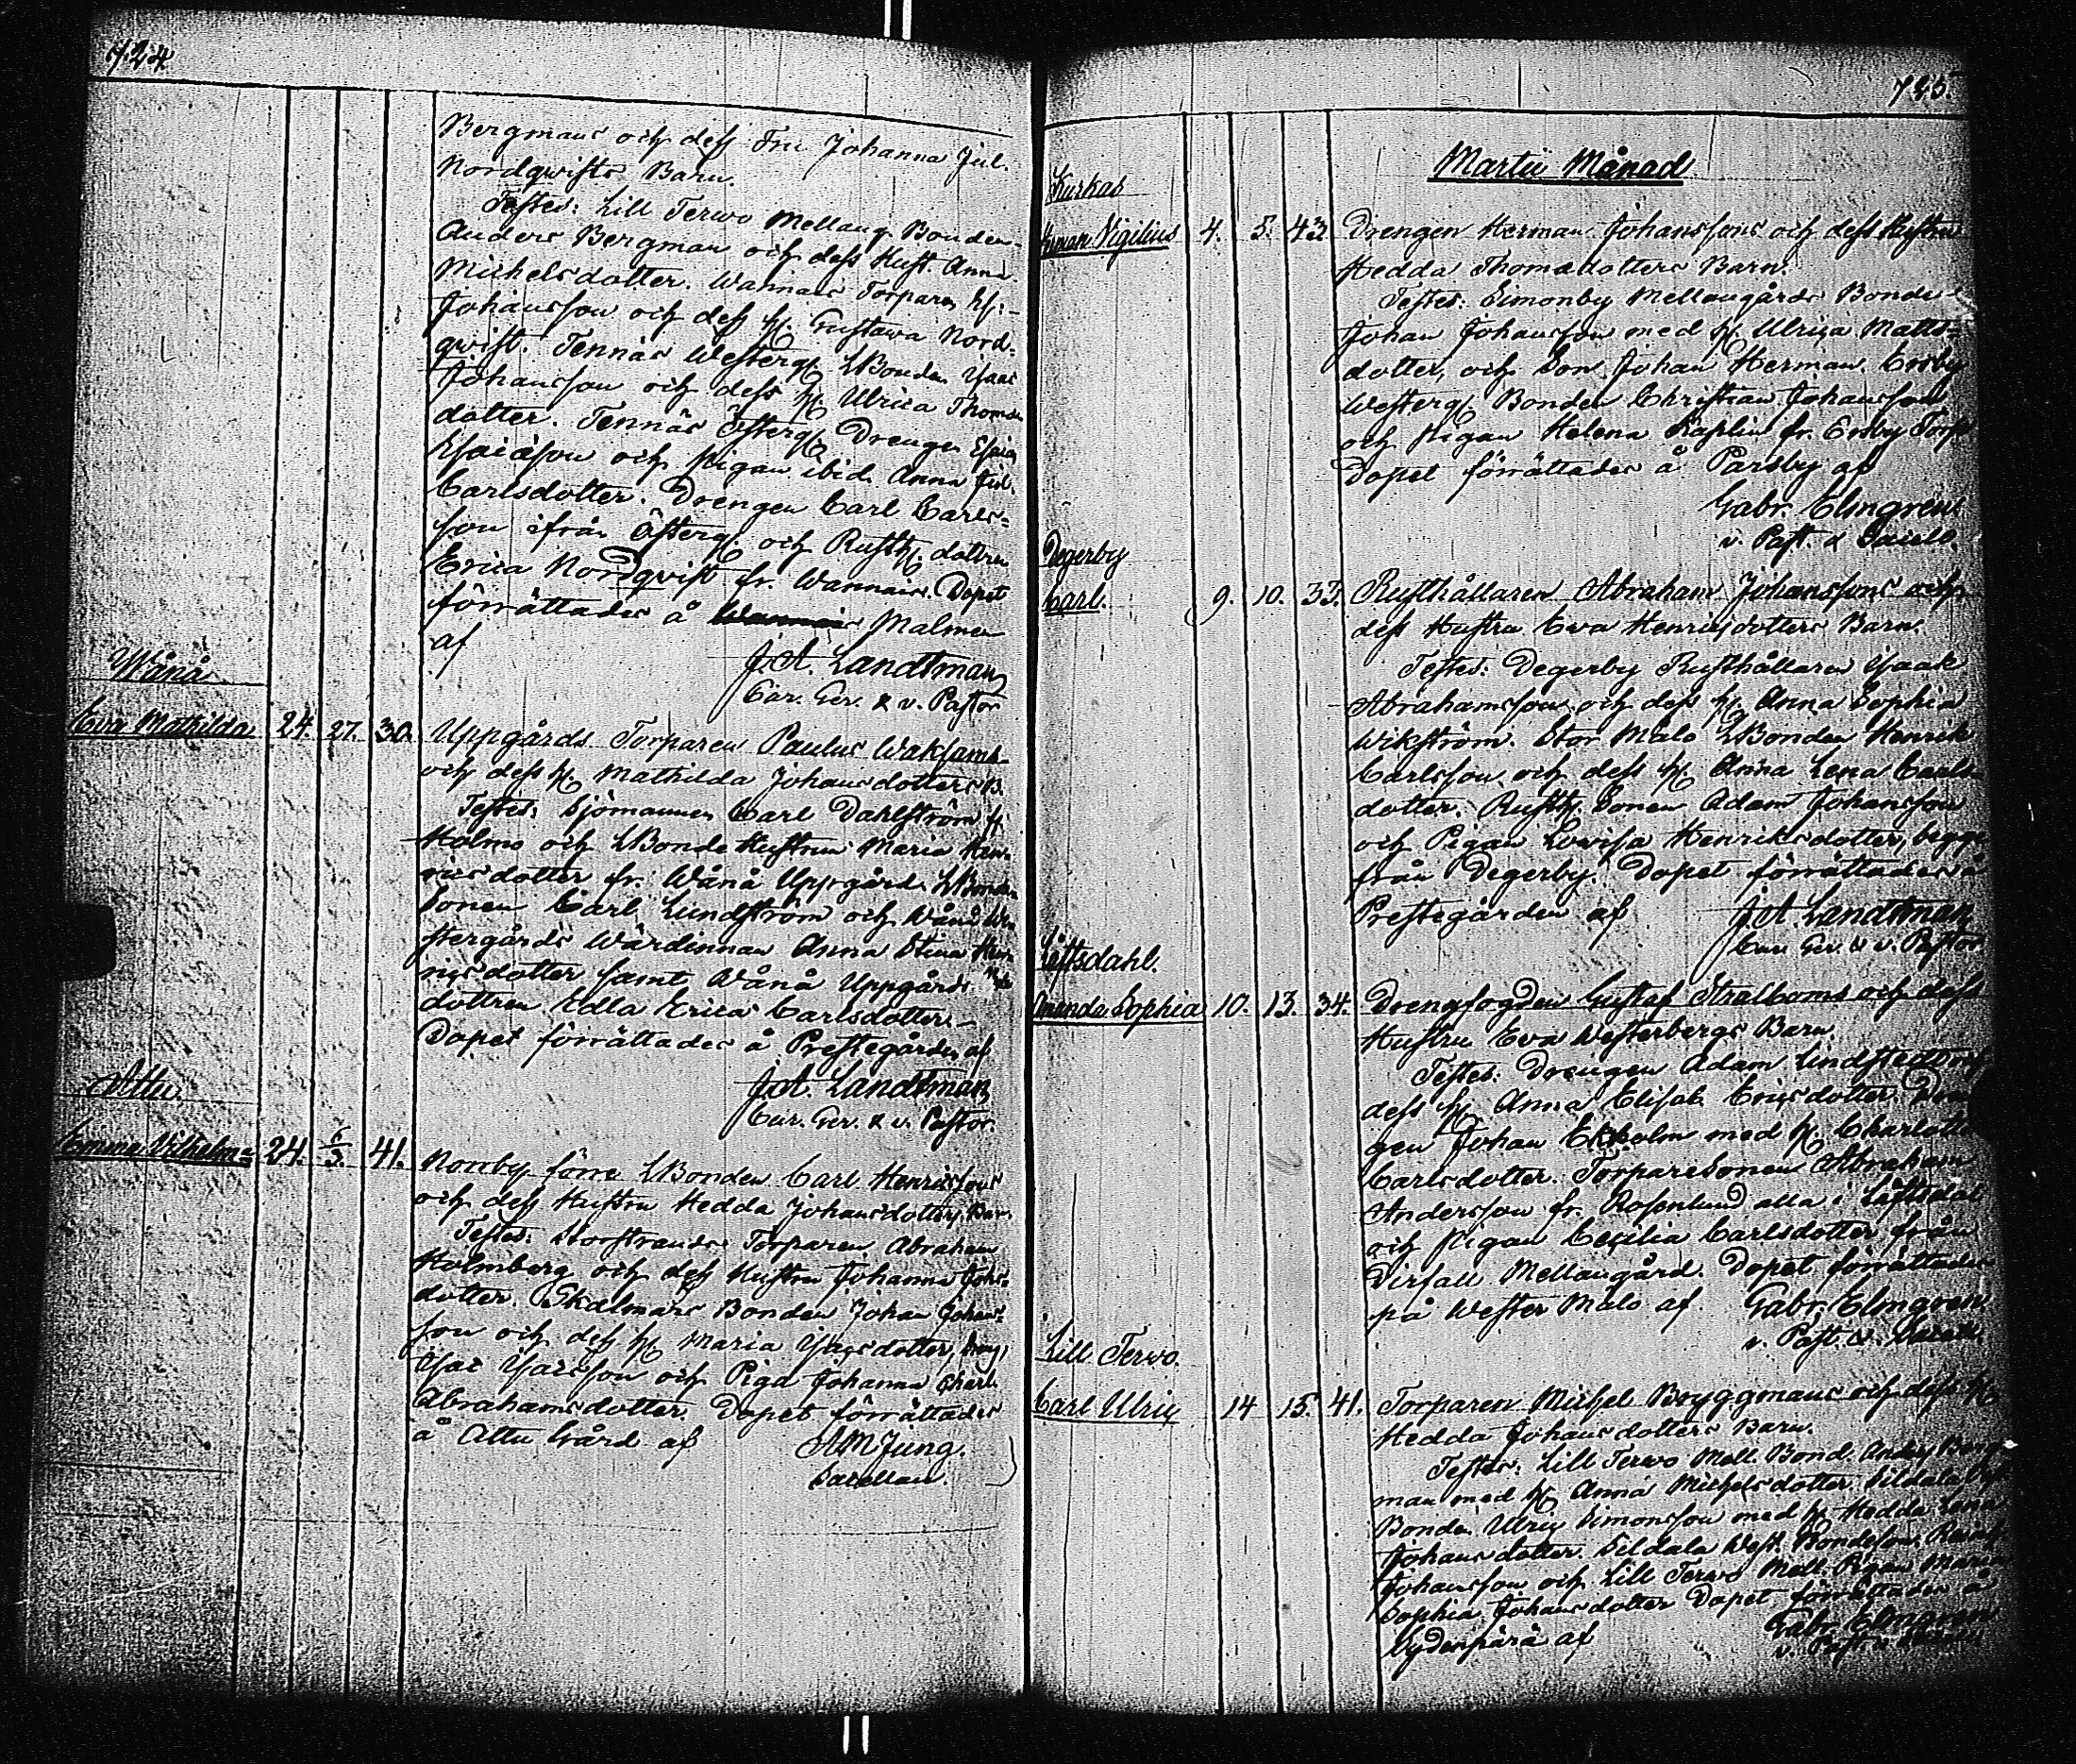 724
Bergmans och dess Fru Johanna Jul.
Nordqvists Barn.
Testes: Lill Terwo Mellang. Bonden
Anders Bergman och dess Hust. Anna
Michelsdotter. Wannais Torparen
Johansson och dess H. Gustava Nord=
qvist. Tennäs Westerg. LBonden Isaac
Johansson och dess H. Ulrica Thomas
dotter. Tennäs Österg. Drengen Esaias
Esaiasson och Pigan ibid. Anna
Carlsdotter. Drengen Carl Carls=
son ifrån Österg. och Rusth. dottren
Erica Nordqvist fr. Wannais. Dopet
förrättades å Malmen
af
J. A. Landtman
Cur. Ger. & v. Pastor
Wånå
Eva Mathilda 24. 27. 30. Uppgårds Torparen Paulus Waksams
och dess H. Mathilda Johansdotters B.
Testes: Sjömannen Carl Dahlström fr.
Holmo och LBonde Hustrun Maria Hen=
ricsdotter fr. Wånå Uppgård. LBonde
Sonen Carl Lundström och Wånå We
stergårds Wärdinnan Anna Stina Hen
ricsdotter samt Wånå Uppgårds
dottren Edla Erica Carlsdotter.
Dopet förrättades å Prestegården af
J. A. Landtman
Cur. Ger. & v. Pastor
Attu.
Emma Vilhelm= 24. 6/3. 41. Norrby förre LBonden Carl Henricssons
och dess Hustru Hedda Johansdotters Bar.
Testes: Storstrands Torparen Abraham
Holmberg och dess Hustru Johanna Johs=
dotter. Skalmars Bonden Johan Johans=
son och dess H. Maria dotter, Dreng,
Isac Isacsson och Piga Johanna
Abrahamsdotter. Dopet förrättades
å Attu Gård af A M Jung.
Sacellan.
725
Martii Månad
Kurkas
Herman Vigilius 4. 5. 43. Drengen Herman Johanssons och dess Hustru
Hedda Thomædotters Barn.
Testes: Simonby Mellangårds Bonde
Johan Johansson med H. Ulrica Matts=
dotter, och Son Johan Herman. Ersby
Westerg. Bonden Christian Johansson
och Pigan Helena Kaplin fr. Ersby Torp
Dopet förrättades å Parsby af
Gabr. Elmgren
v. Past. & Sacell.
Degerby
Carl. 9. 10. 33. Rusthållaren Abraham Johanssons och
dess Hustru Eva Henricsdotters Barn.
Testes: Degerby Rusthållaren Isaak
Abrahamsson och dess H. Anna Sophia
Wikström. Stor Målo LBonden Henrik
Carlsson och dess H. Anna Lena Carls
dotter. Rusth. Sonen Adam Johansson
och Pigan Lovisa Henriksdotter, begge
från Degerby. Dopet förrättades å
Prestegården af J. A. Landtman
Cur. Ger. & v. Pastor
Löftsdahl.
Amanda Sophia 10. 13. 34. Drengfogden Gustaf Stralboms och dess
Hustru Eva Westerbergs Barn.
Testes: Drengen Adam Lindstedt och
dess H. Anna Elisab. Ericsdotter. Dren
gen Johan Ekholm med H. Charlotta
Carlsdotter. Torparesonen Abraham
Andersson fr. Rosenlund alla i Löftsdal
och Pigan Cecilia Carlsdotter från
Dirfall Mellangård. Dopet förrättades
på Wester Målo af Gabr. Elmgren
v. Past. & Sacell.
Lill Terwo.
Carl Ulric 14 15. 41. Torparen Michel Bryggmans och dess H.
Hedda Johansdotters Barn.
Testes: Lill Terwo Mell. Bond. Anders Berg
man med H. Anna Michelsdotter. Sildala
Bonden Ulric Simonsson med H. Hedda Lena
Johansdotter. Sildala West. Bondeson
Johansson och Lill Terwo Mell. Pigan Maria
Sophia Johansdotter Dopet förrättades å
af Gabr. Elmgren
v. Past. & Sacell.